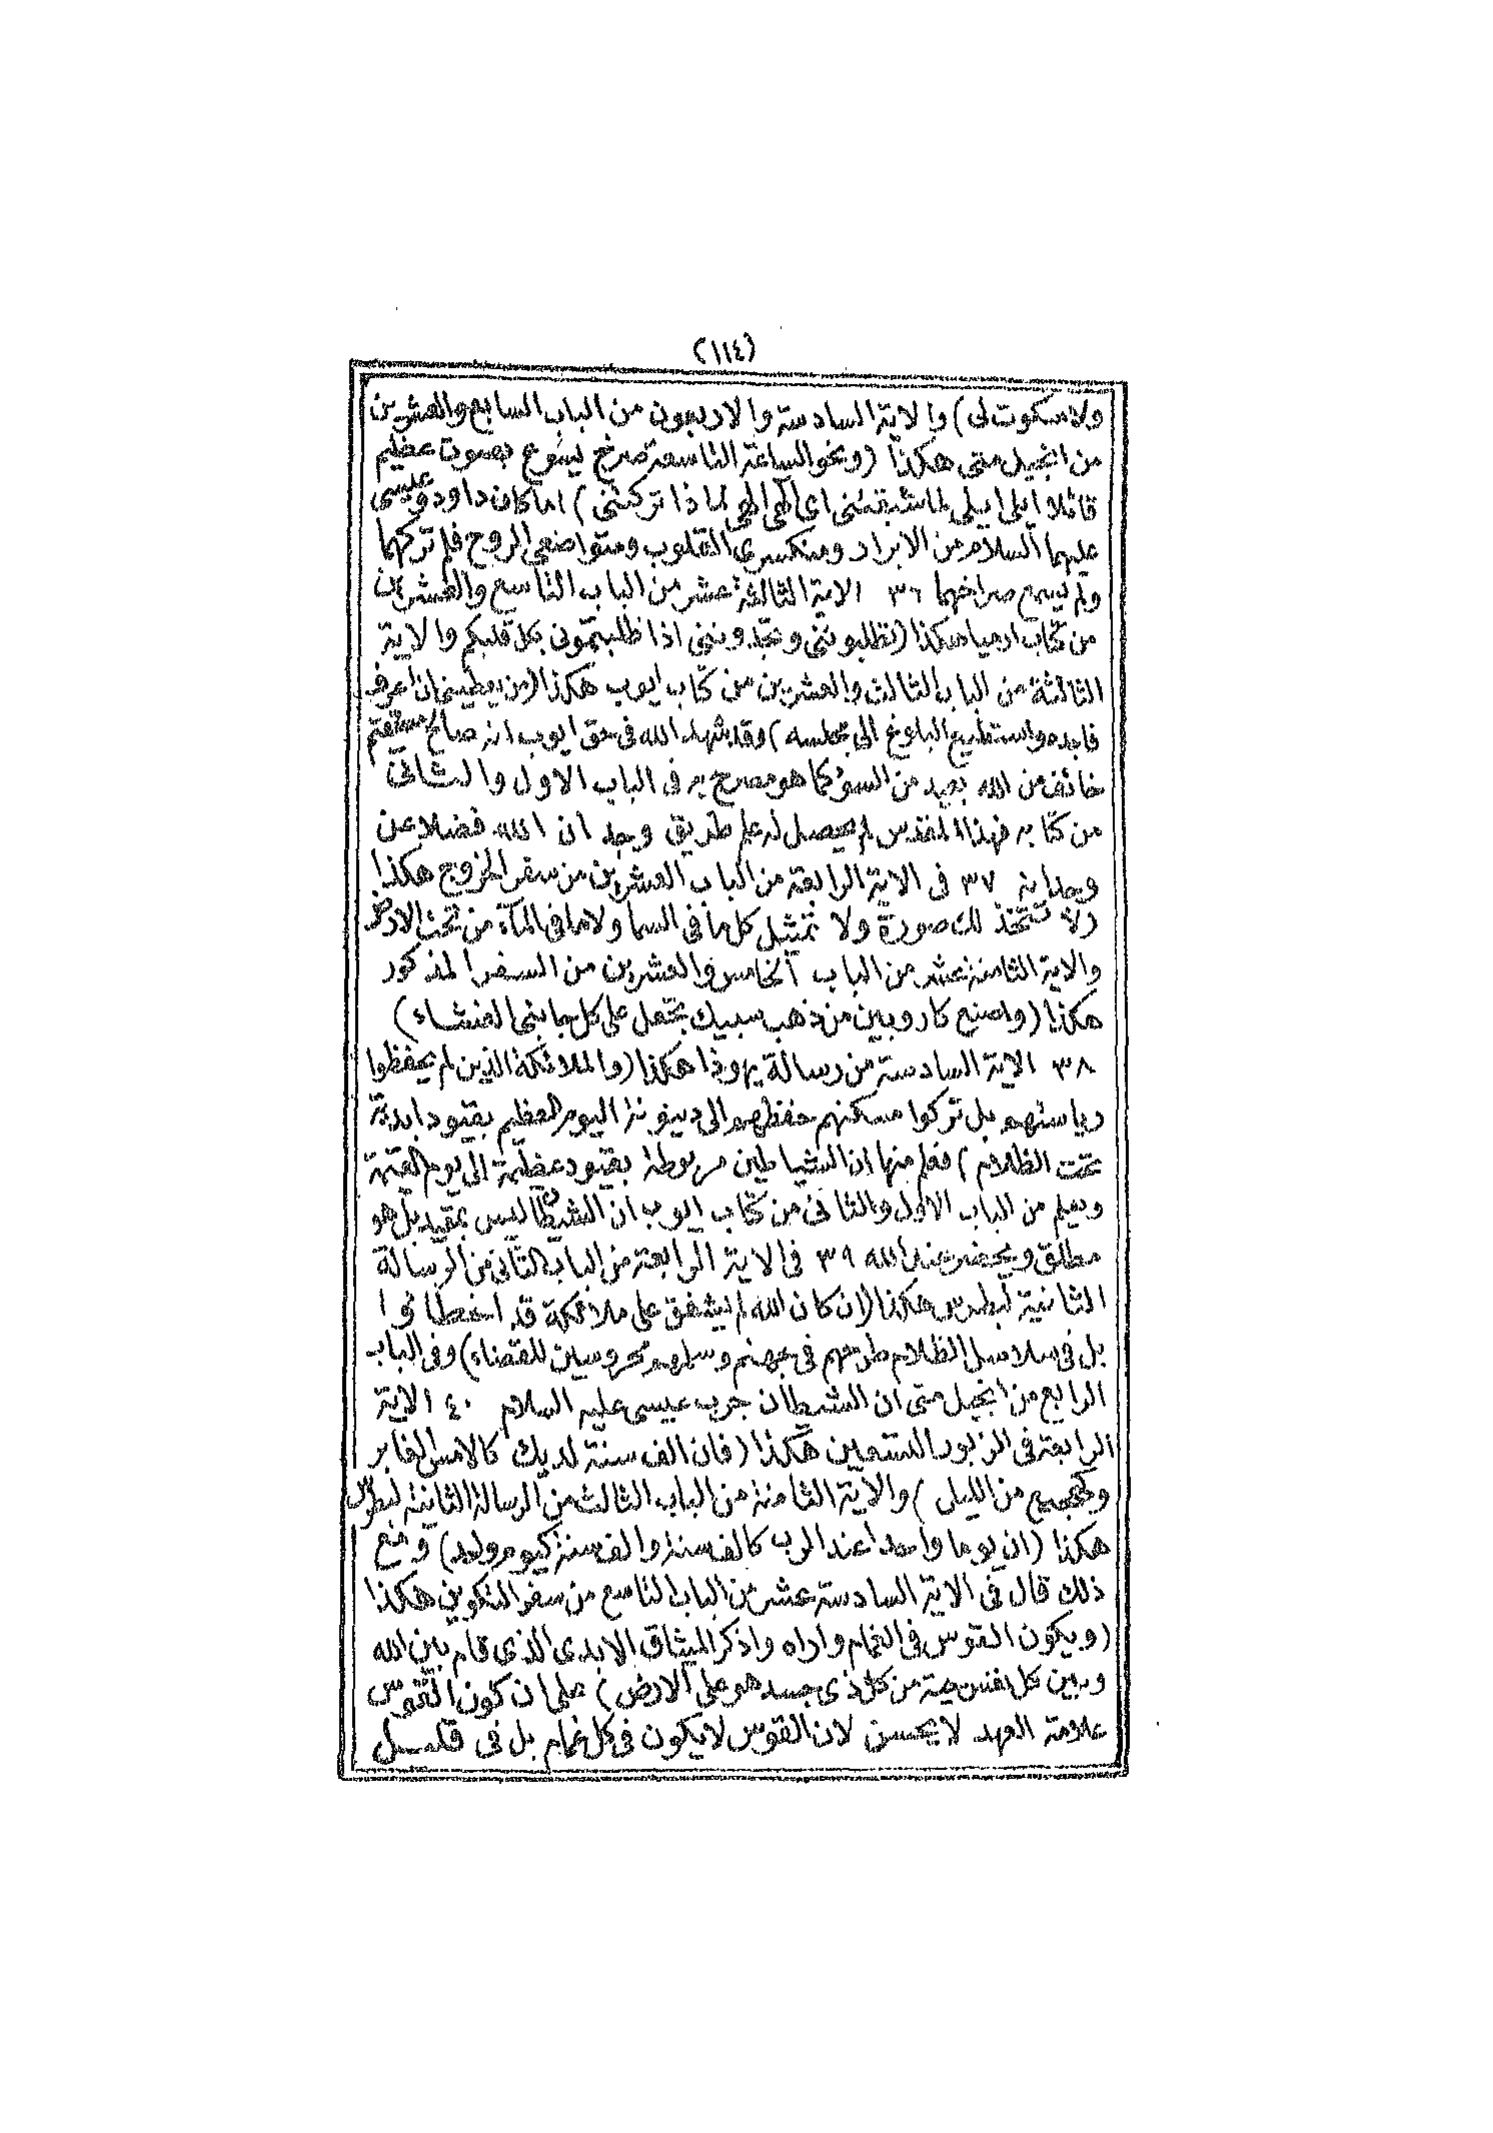 (١١٤)
ولا سكوت لى) والاية السادسة والاربعون من الباب السابع والعشرين
من انجيل متى هكذا (ونحو الساعة التاسعة صرخ يسوع بصوت عظيم
قائلا ايلى ايلى لما شبقتنى اى الهى الهى لماذا تركتنى) اما كان داود وعيسى
عليهما السلام من الابرار ومنكسرى القلوب ومتواضعى الروح فلم تركهما
ولم يسمع صراخهما ٣٦ الاية الثالثة عشر من الباب التاسع والعشرين
من كتاب ارميا هكذا (تطلبوننى وتجدوننى اذا طلبتمونى بكل قلبكم والاية
الثالثة من الباب الثالث والعشرين من كتاب ايوب هكذا (من يعطينى ان اعرف
فاجده واستطيع البلوغ الى مجلسه) وقد شهد الله فى حق ايوب انه صالح مستقيم
خائف من الله بعيد من السؤ كما هو مصرح به فى الباب الاول والثانى
من كتابه فهذا المقدس لم يحصل له علم طريق وجدان الله فضلا عن
وجدانه ٣٧ فى الاية الرابعة من الباب العشرين من سفر الخروج هكذا
(لا تتخذ لك صورة ولا تمثيل كل ما فى السما ولا ما فى المآء من تحت الارض
والاية الثامنة عشر من الباب الخامس والعشرين من السفر المذكور
هكذا (واصنع كاروبين من ذهب سبيك تجعل على كل جانبى الغشاء)
٣٨ الاية السادسة من رسالة يهوذا هكذا (والملائكة الذين لم يحفظوا
رياستهم بل تركوا مسكنهم حفظهم الى دينونة اليوم العظيم بقيود ابدية
تحت الظلام) فعلم منها ان الشياطين مربوطة بقيود عظيمة الى يوم القيمة
ويعلم من الباب الاول والثانى من كتاب ايوب ان الشيطان ليس بمقيد بل هو
مطلق ويحضر عند الله ٣٩ فى الاية الرابعة من الباب الثانى من الرسالة
الثانية لبطرس هكذا (ان كان الله لم يشفق على ملائكة قد اخطائوا
بل فى سلاسل الظلام طرحهم فى جهنم وسلمهم محروسين للقضاء) وفى الباب
الرابع من انجيل متى ان الشيطان جرب عيسى عليه السلام ٤٠ الاية
الرابعة فى الزبور التسعين هكذا (فان الف سنة لديك كالامس الغابر
وكهجيع من الليل) والاية الثامنة من الباب الثالث من الرسالة الثانية لبطرس
هكذا (ان يوما واحدا عند الرب كالف سنة والف سنة كيوم واحد) ومع
ذلك قال فى الاية السادسة عشر من الباب التاسع من سفر التكوين هكذا
(ويكون القوس فى الغمام واراه واذكر الميثاق الابدى الذى قام بين الله
وبين كل نفس حية من كل ذى جسد هو على الارض) على ان كون القوس
علامة العهد لا يحسن لان القوس لا يكون فى كل غمام بل فى قليل